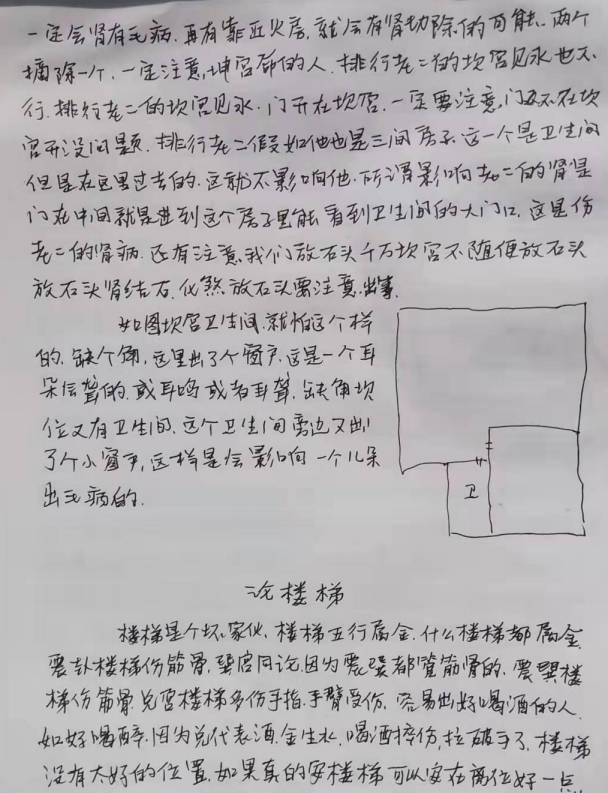 一定会肾有毛病.再有靠近火房,就会有肾切除的可能.两个
摘除一个.一定注意,坤宫部的人.排行老二的坎宫见水也不
行.排行老二的坎宫见水.门开在坎宫.一定要注意,门不在坎
宫开没问题.排行老二假如他也是三间房子.这一个是卫生间
但是在这里过去的.这就不影响他.所谓影响老二的肾是
门在中间就是进到这个房子里能看到卫生间的大门口.这是伤
老二的肾病.还有注意,我们放石头千万坎宫不随便放石头
放石头肾结石.化煞放石头要注意.出事.
如图坎宫卫生间.就怕这个样
的.缺个角.这里出了个窗户.这是一个耳
朵会聋的.或耳鸣或者耳聋.缺角坎
位又有卫生间.这个卫生间旁边又出
了个小窗户,这样是会影响一个儿朵
出毛病的.
卫
论楼梯
楼梯是个坏家伙.楼梯五行属金.什么楼梯都属金.
震卦楼梯伤筋骨.巽宫同论.因为震巽都管筋骨的.震巽楼
梯伤筋骨.兑宫楼梯多伤手指.手臂受伤.容易出好喝酒的人.
如好喝醉.因为兑代表酒.金生水.喝酒摔伤,拉破手了.楼梯
没有太好的位置.如果真的安楼梯可以安在离位好一点